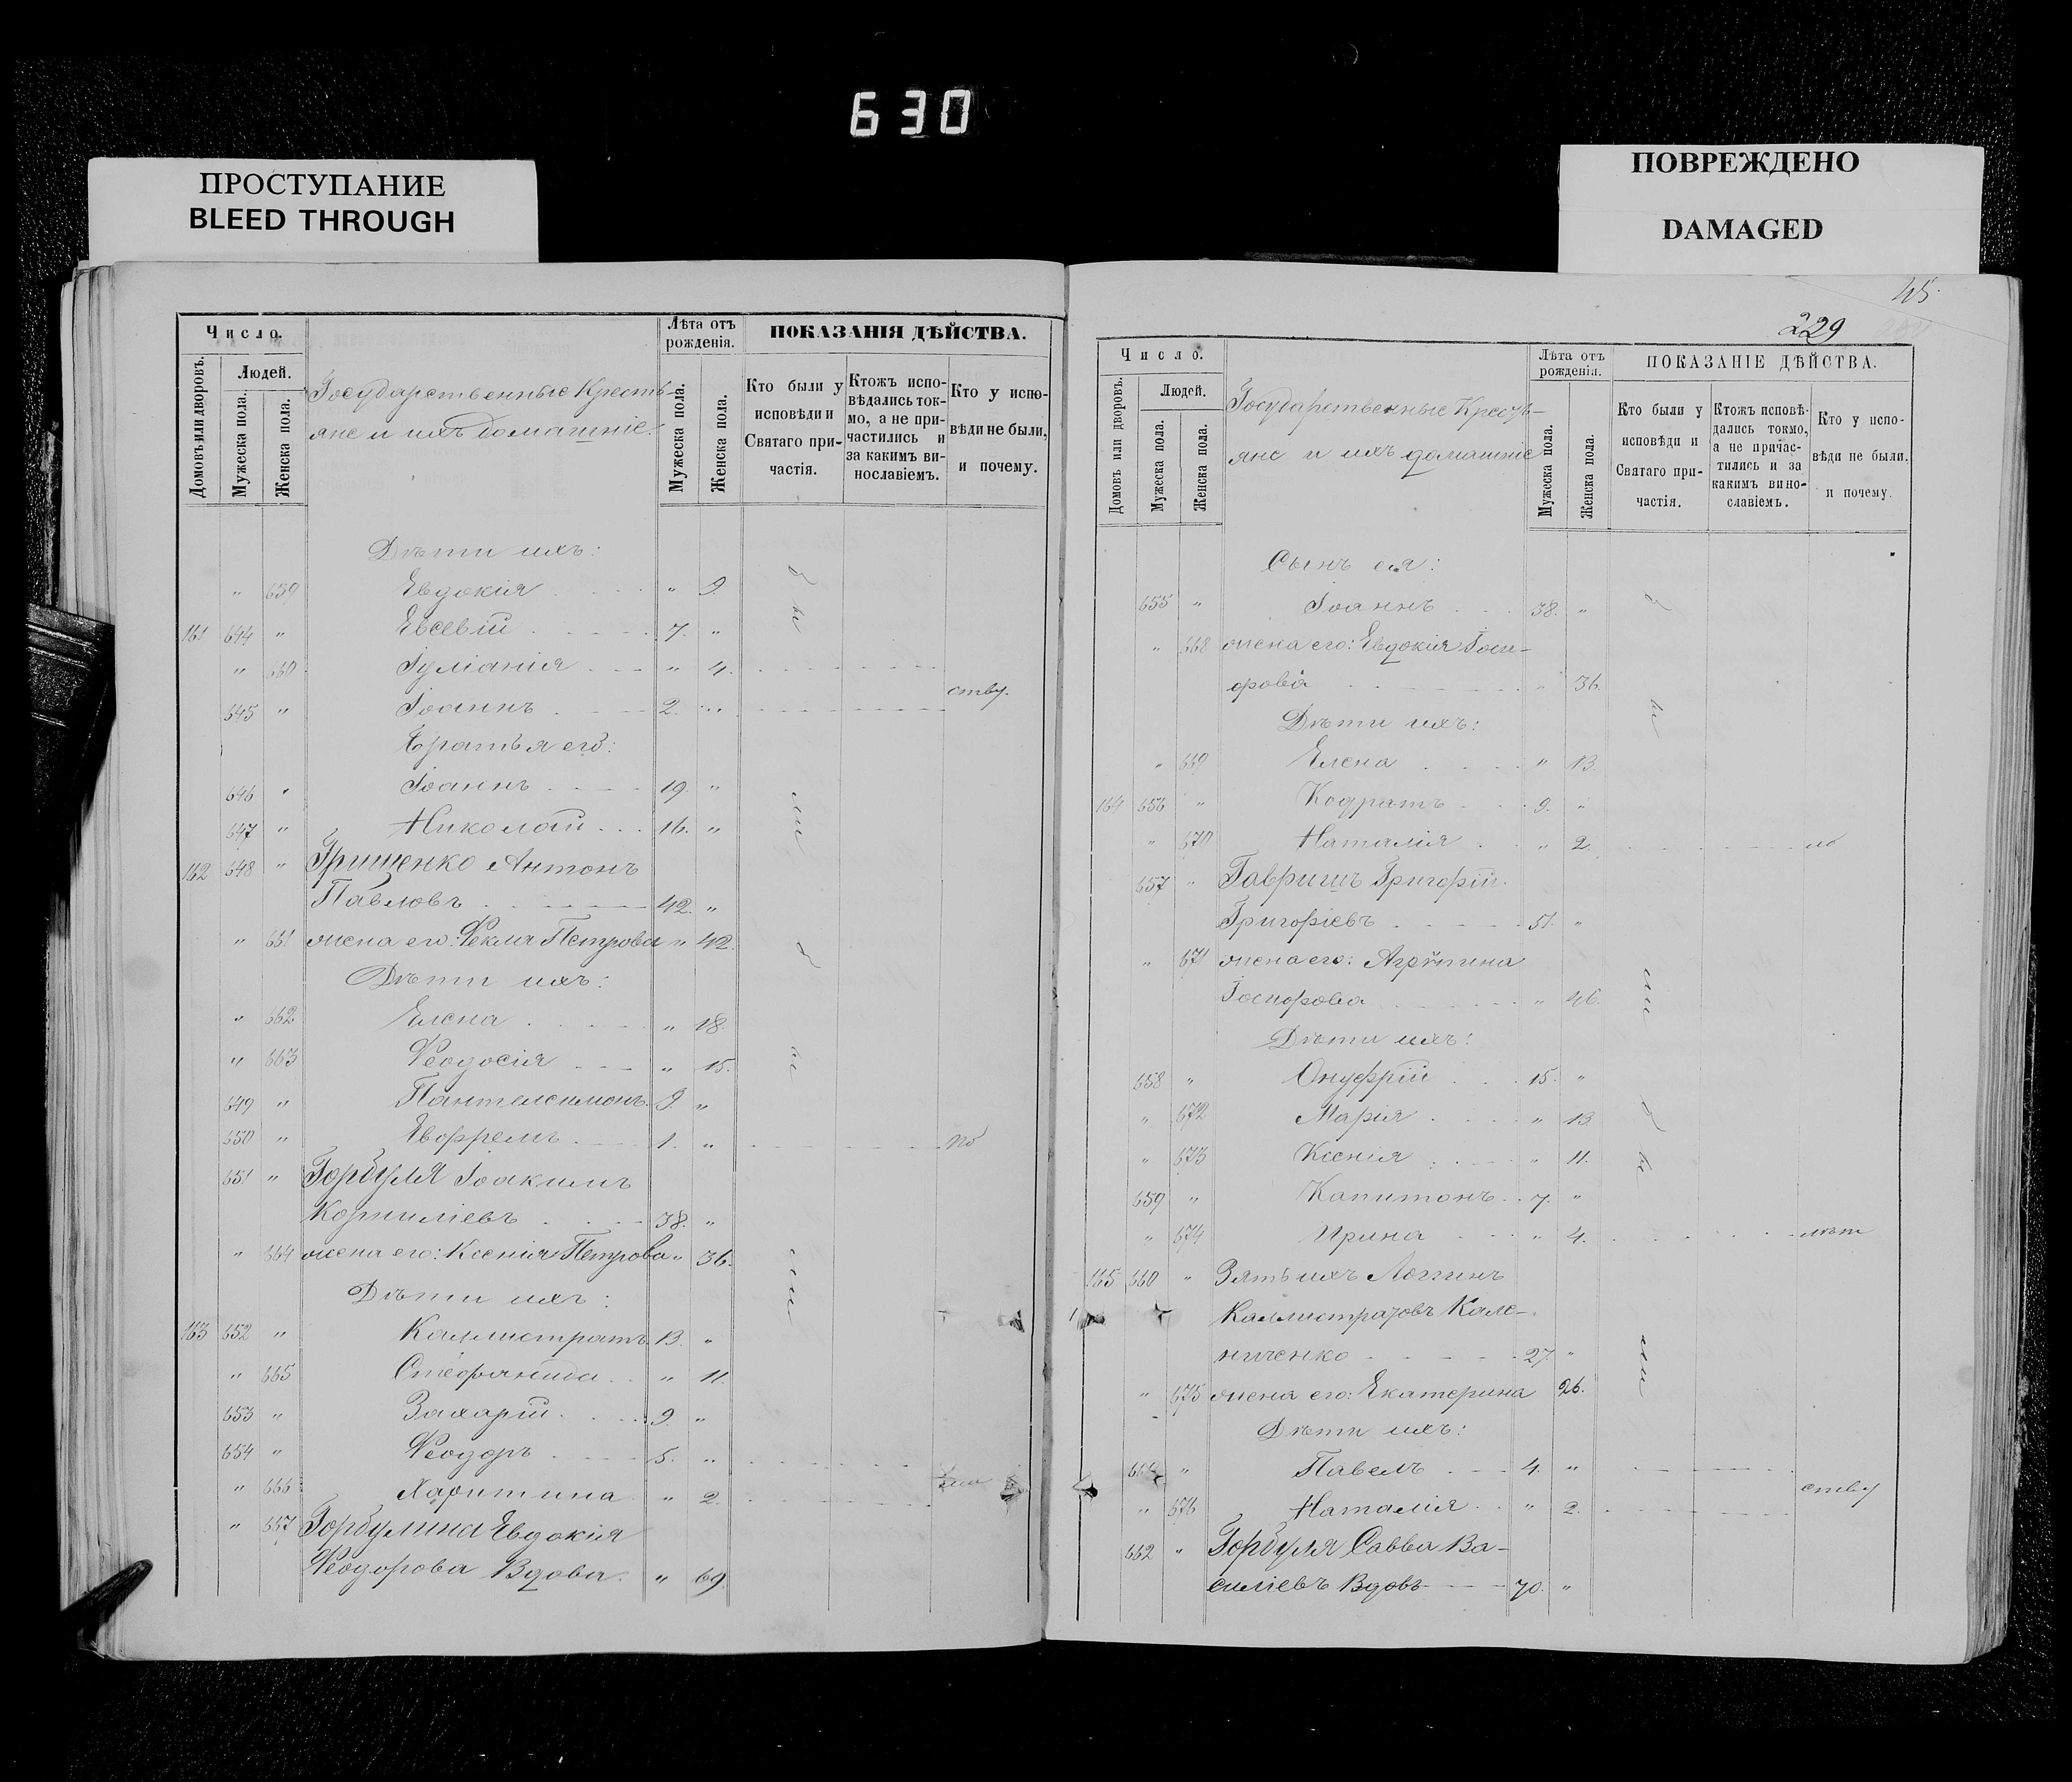 630
ПРОСТУПАНИЕ
BLEED THROUGH
ПОВРЕЖДЕНО
DAMAGED
Число.
Домовъ или дворовъ.
Людей.
Мужеска пола.
Женска пола.
Государственные Кресть-
яне и ихъ домашніе.
Лѣта отъ
рожденія.
Мужеска пола.
Женска пола.
ПОКАЗАНІЯ ДѢЙСТВА.
Кто были у
исповѣди и
Святаго при-
частія.
Ктожъ испо-
вѣдались ток-
мо, а не при-
частились и
за какимъ ви-
нославіемъ.
Кто у испо-
вѣди не были,
и почему.
Дѣти ихъ:
" 659 Евдокія " 9.
161 644 " Евсевій 7. "
" 660 Іуліанія " 4.
ству.
645 " Іоаннъ 2. "
Братья его:
646 " Іоаннъ 19. "
647 " Николай 16. "
162 648 " Грищенко Антонъ
Павловъ 42. "
" 661 жена его: Ѳекла Петрова " 42.
Дѣти ихъ:
" 662 Елена " 18.
" 663 Ѳеодосія " 15.
649 " Пантелеимонъ 9. "
650 " Евфремъ 1. " по
651 " Горбуля Іоакимъ
Корниліевъ 38. "
" 664 жена его: Ксенія Петрова " 36.
Дѣти ихъ:
163 652 " Каллистратъ 13. "
" 665 Стефанида " 11.
653 " Захарій 9. "
654 " Ѳеодоръ 5. "
" 666 Харитина " 2.
" 667 Горбулина Евдокія
Ѳеодорова Вдова. " 69.
45.
229
Число.
Домовъ или дворовъ.
Людей.
Мужеска пола.
Женска пола.
Государственные Кресть-
яне и ихъ домашніе
Лѣта отъ
рожденія.
Мужеска пола.
Женска пола.
ПОКАЗАНІЕ ДѢЙСТВА.
Кто были у
исповѣди и
Святаго при-
частія.
Ктожъ исповѣ-
дались токмо,
а не причас-
тились и за
какимъ вино-
славіемъ.
Кто у испо-
вѣди не были.
и почему.
Сынъ ея:
655 " Іоаннъ 38. "
" 668 жена его: Евдокія Іоси-
фова " 36.
Дѣти ихъ:
" 669 Елена " 13.
164 656 " Кодратъ 9. "
" 670 Наталія " 2.
657 " Гавришъ Григорій
Григоріевъ 51. "
" 671 жена его: Агрипина
Іосифова " 46.
Дѣти ихъ:
658 " Онуфрій 15. "
" 672 Марія " 13.
" 673 Ксенія " 11.
659 " Капитонъ 7. "
" 674 Ирина " 4. лѣт
165 660 " Зять ихъ Логинъ
Каллистратовъ Кале-
ниченко 27. "
" 675 жена его: Екатерина 26.
Дѣти ихъ:
661 " Павелъ 4. "
ству
" 676 Наталія " 2.
662 " Горбуля Савва Ва-
силіевъ Вдовъ 70. "